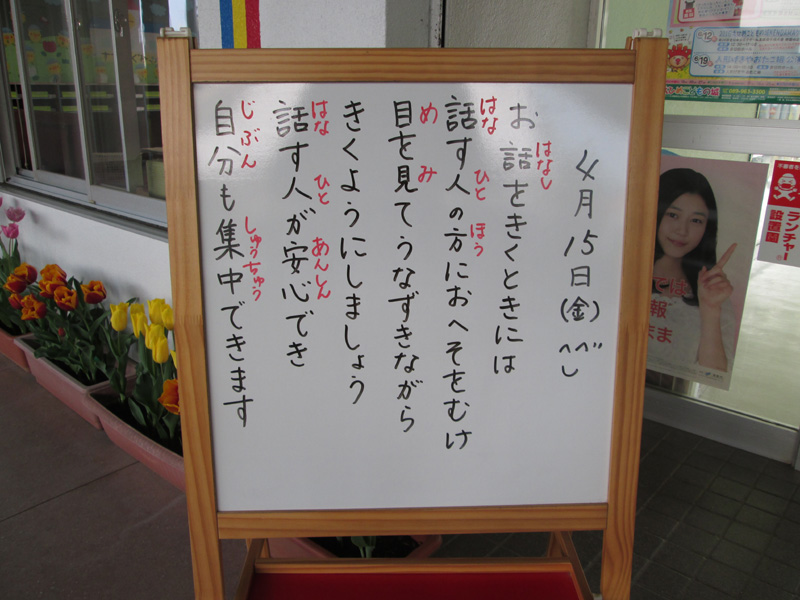 4月15日(金)
お話をきくときには
はなし
話す人の方におへそをむけ
はな ひと ほう
目を見てうなずきながら
め み
きくようにしましょう
話す人が安心でき
はな ひと あんしん
自分も集中できます
じぶん しゅうちゅう
ランチャー
設置園